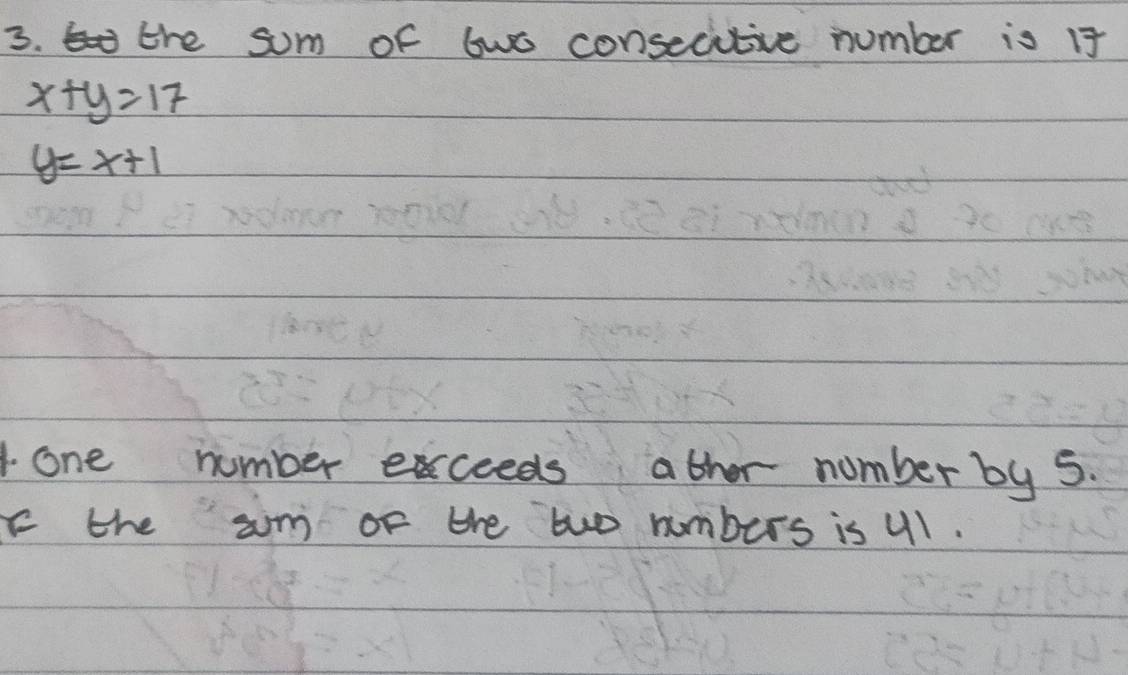 3. the sum of two consecutive number is 17
x+y=17
y=x+1
one number exceeds a ther number by 5.
the sum of the two numbers is 41.